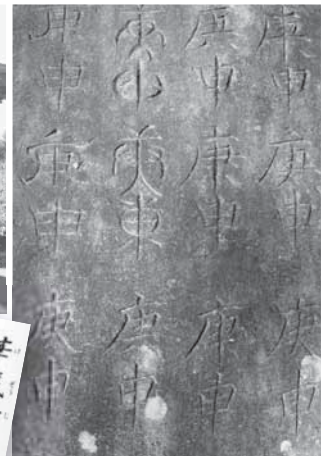 庚申庚申庚申
庚申庚申庚申
庚申
庚申庚申庚申